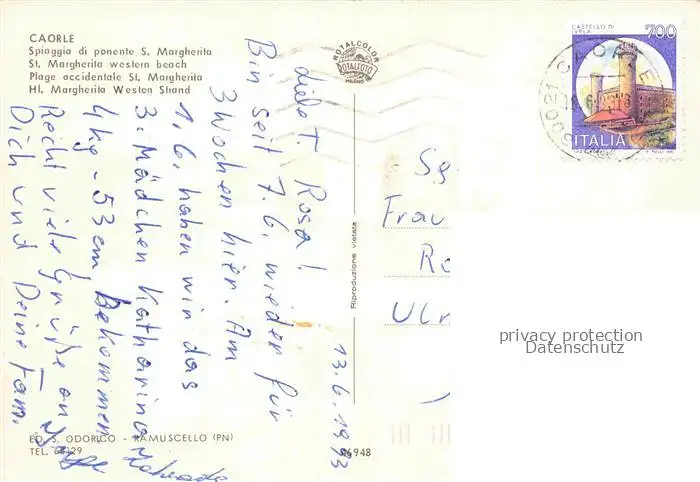 CAORLE
Spiaggia di ponente S. Margherita
St. Margherita western beach
Plage accidentale St. Margherita
Hl. Margherita Westen Strand
ROTALCOLOR
ROTALFOTO
MILANO
CASTELLO DI
IVREA
700
ITALIA
CAORLE
13.6.1993
Liebe T. Rosa!
Bin seit 7.6. wieder für
3 Wochen hier. Am
1.6. haben wir das
3. Mädchen Katharina
4kg - 53 cm Bekommen
Recht viele Grüße an
Dich und Deine Fam.
Sg.
Frau
Ro
Ulr
Riproduzione vietata
privacy protection
Datenschutz
ED. S. ODORICO - RAMUSCELLO (PN)
TEL.